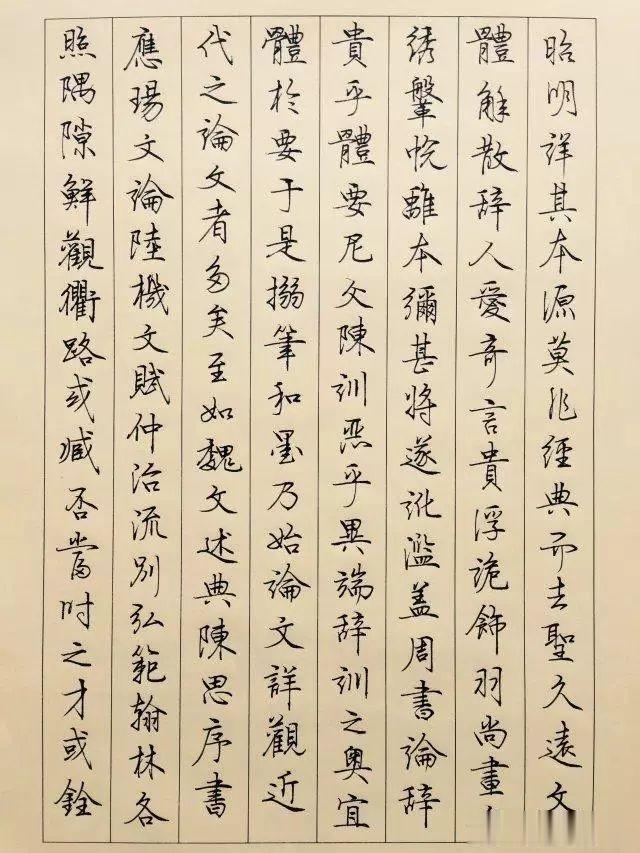 昭明詳其本源莫非經典而去聖久遠文
體解散辞人愛奇言貴浮詭飾羽尚畫
綉鞶帨離本彌甚將遂訛濫盖周書論辞
貴乎體要尼父陳訓惡乎異端辞訓之奥宜
體於要于是搦筆和墨乃始論文詳觀近
代之論文者多矣至如魏文述典陳思序書
應瑒文論陸機文賦仲治流別弘範翰林各
照隅隙鮮觀衢路或臧否當时之才或銓